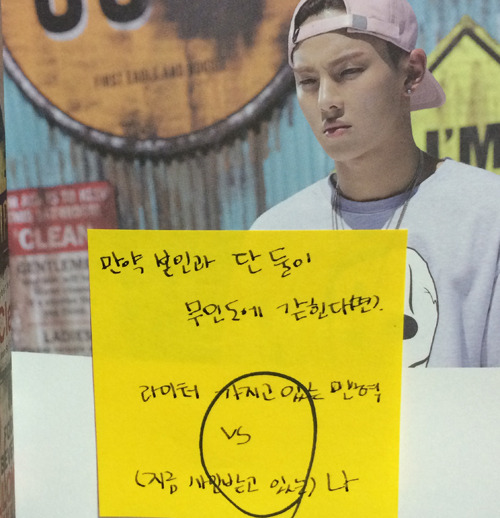 FIRST EAGLE AND
CLEAN
GENTLEMEN
LADIES
I'M
만약 본인과 단 둘이
무인도에 갇힌다면?
라이터 가지고 있는 민혁
VS
(지금 싸인받고 있는) 나